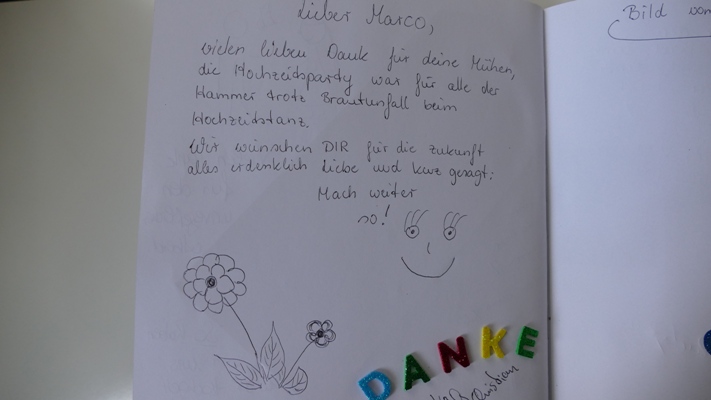 Lieber Marco,
vielen lieben Dank für deine Mühen,
die Hochzeitsparty war für alle der
Hammer trotz Brautunfall beim
Hochzeitstanz.
Wir wünschen DIR für die Zukunft
alles erdenklich Liebe und kurz gesagt:
Mach weiter
so!
DANKE
Bild von